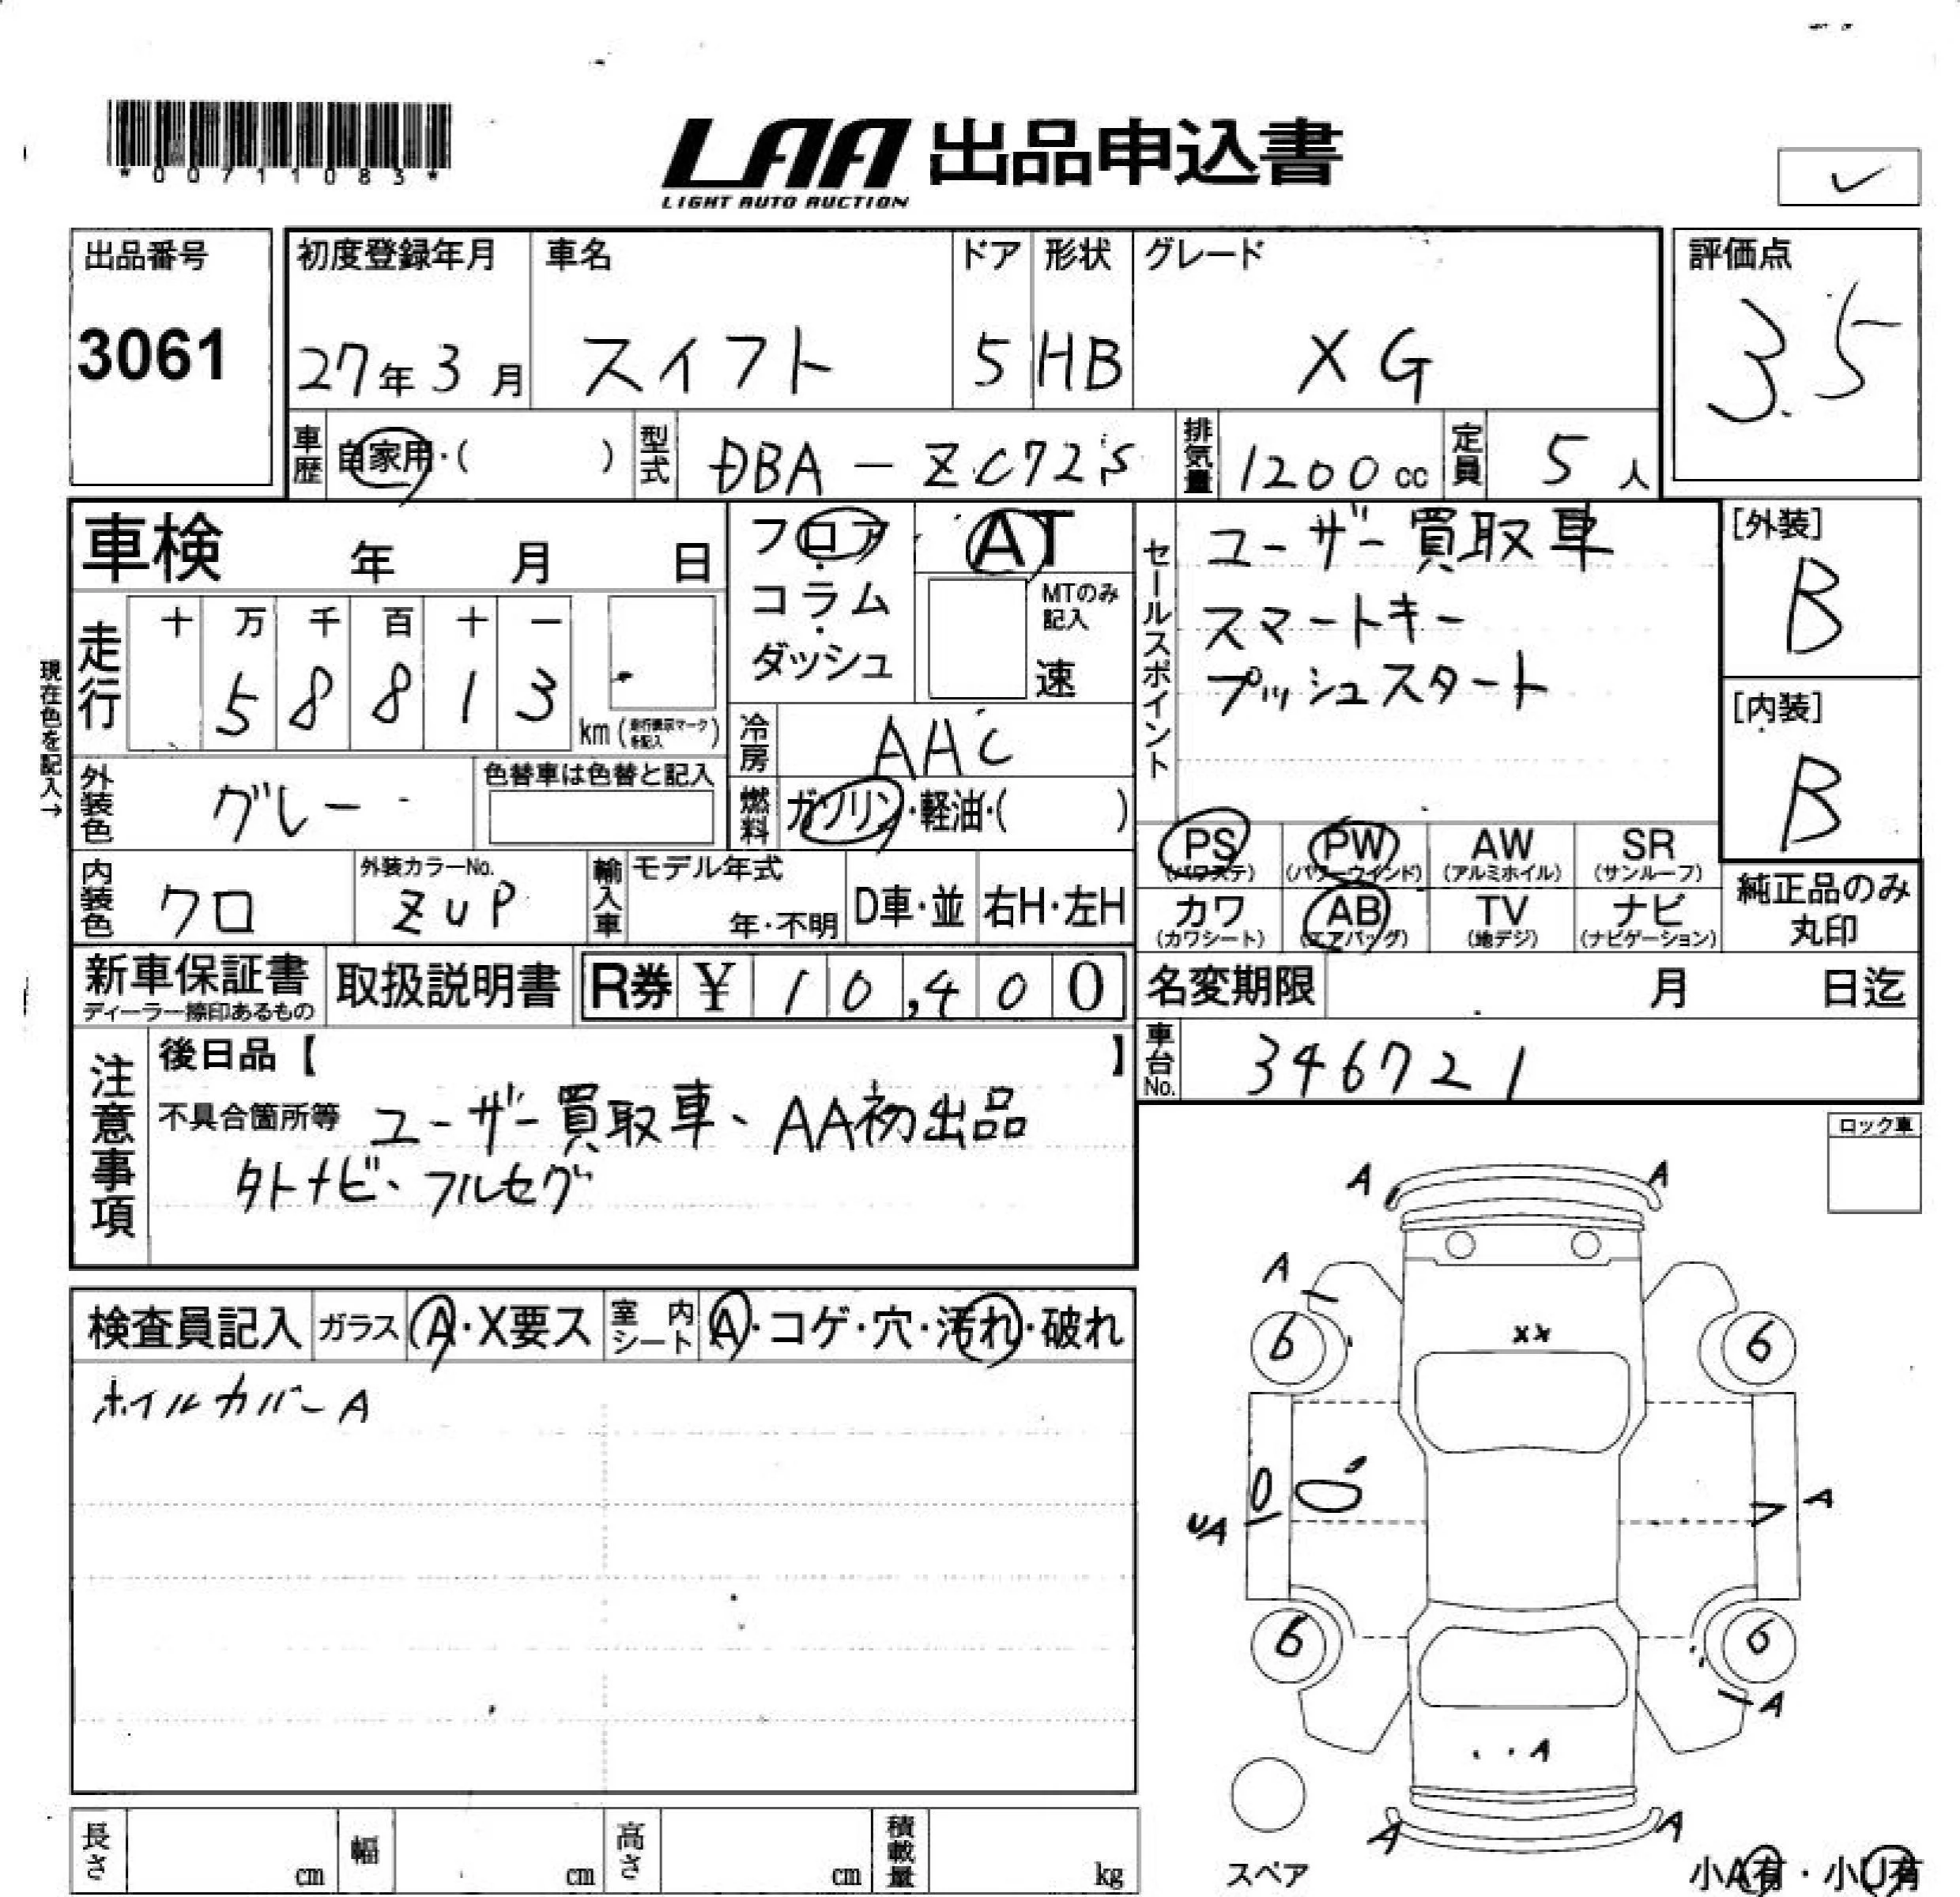 *00711083*
LAA 出品申込書
LIGHT AUTO AUCTION
出品番号
3061
初度登録年月
27年3月
車名
スイフト
ドア
5
形状
HB
グレード
XG
評価点
3.5
車歴
自家用・( )
型式
DBA-ZC72S
排気量
1200cc
定員
5人
車検 年 月 日
現在色を記入→
走行
十 万 千 百 十 一
5 8 8 1 3
km(走行表示マークを記入)
フロア・コラム・ダッシュ
AT
MTのみ記入
速
冷房
AAC
燃料
ガソリン・軽油・( )
セールスポイント
ユーザー買取車
スマートキー
プッシュスタート
[外装]
B
[内装]
B
外装色
グレー
色替車は色替と記入
内装色
クロ
外装カラーNo.
ZUP
輸入車
モデル年式
年・不明
D車・並
右H・左H
PS
(パワステ)
PW
(パワーウインド)
AW
(アルミホイル)
SR
(サンルーフ)
カワ
(カワシート)
AB
(エアバッグ)
TV
(地デジ)
ナビ
(ナビゲーション)
純正品のみ
丸印
新車保証書
ディーラー捺印あるもの
取扱説明書
R券 ¥10,400
名変期限 月 日迄
車台No.
346721
注意事項
後日品【 】
不具合箇所等 ユーザー買取車、AA初出品
外ナビ、フルセグ
ロック車
検査員記入
ガラス
A・X要ス
室内シート
A・コゲ・穴・汚れ・破れ
ホイルカバーA
A A
A
6 6
XX
UA
A
6 6
A
A
A A
スペア
小A有・小U有
長さ cm
幅 cm
高さ cm
積載量 kg